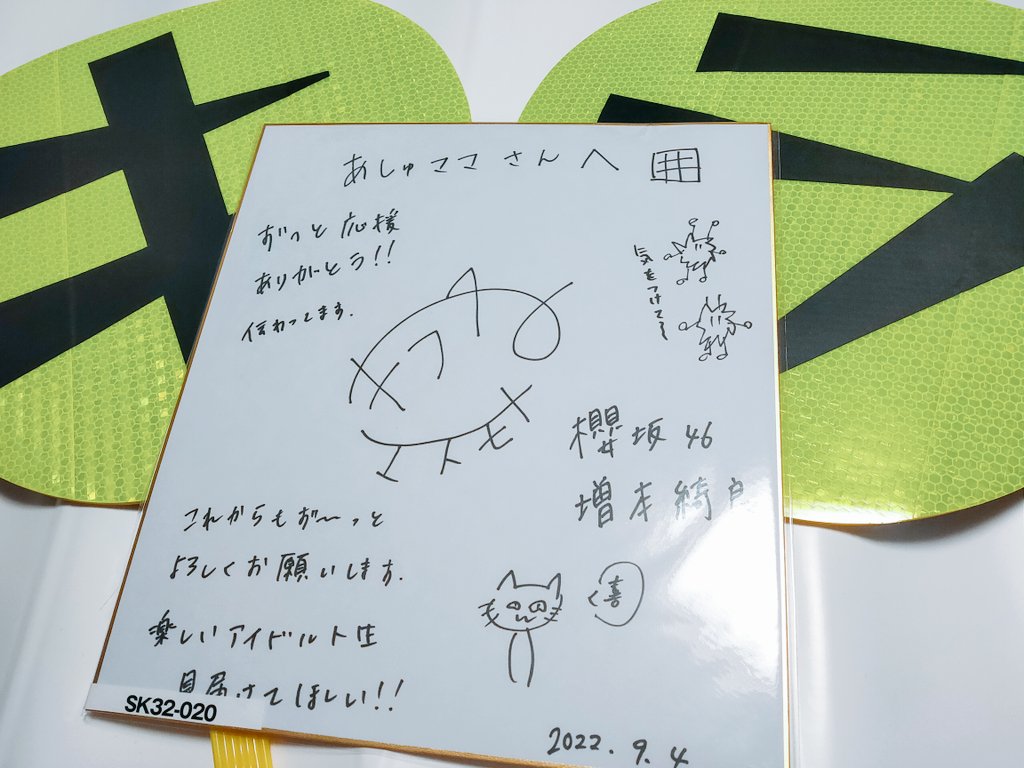 キ
ラ
あしゅママさんへ
ずっと応援
ありがとう!!
伝わってます.
気をつけて〜
櫻坂46
増本綺良
これからもず〜っと
よろしくお願いします.
楽しいアイドル人生
見届けてほしい!!
喜
SK32-020
2022.9.4